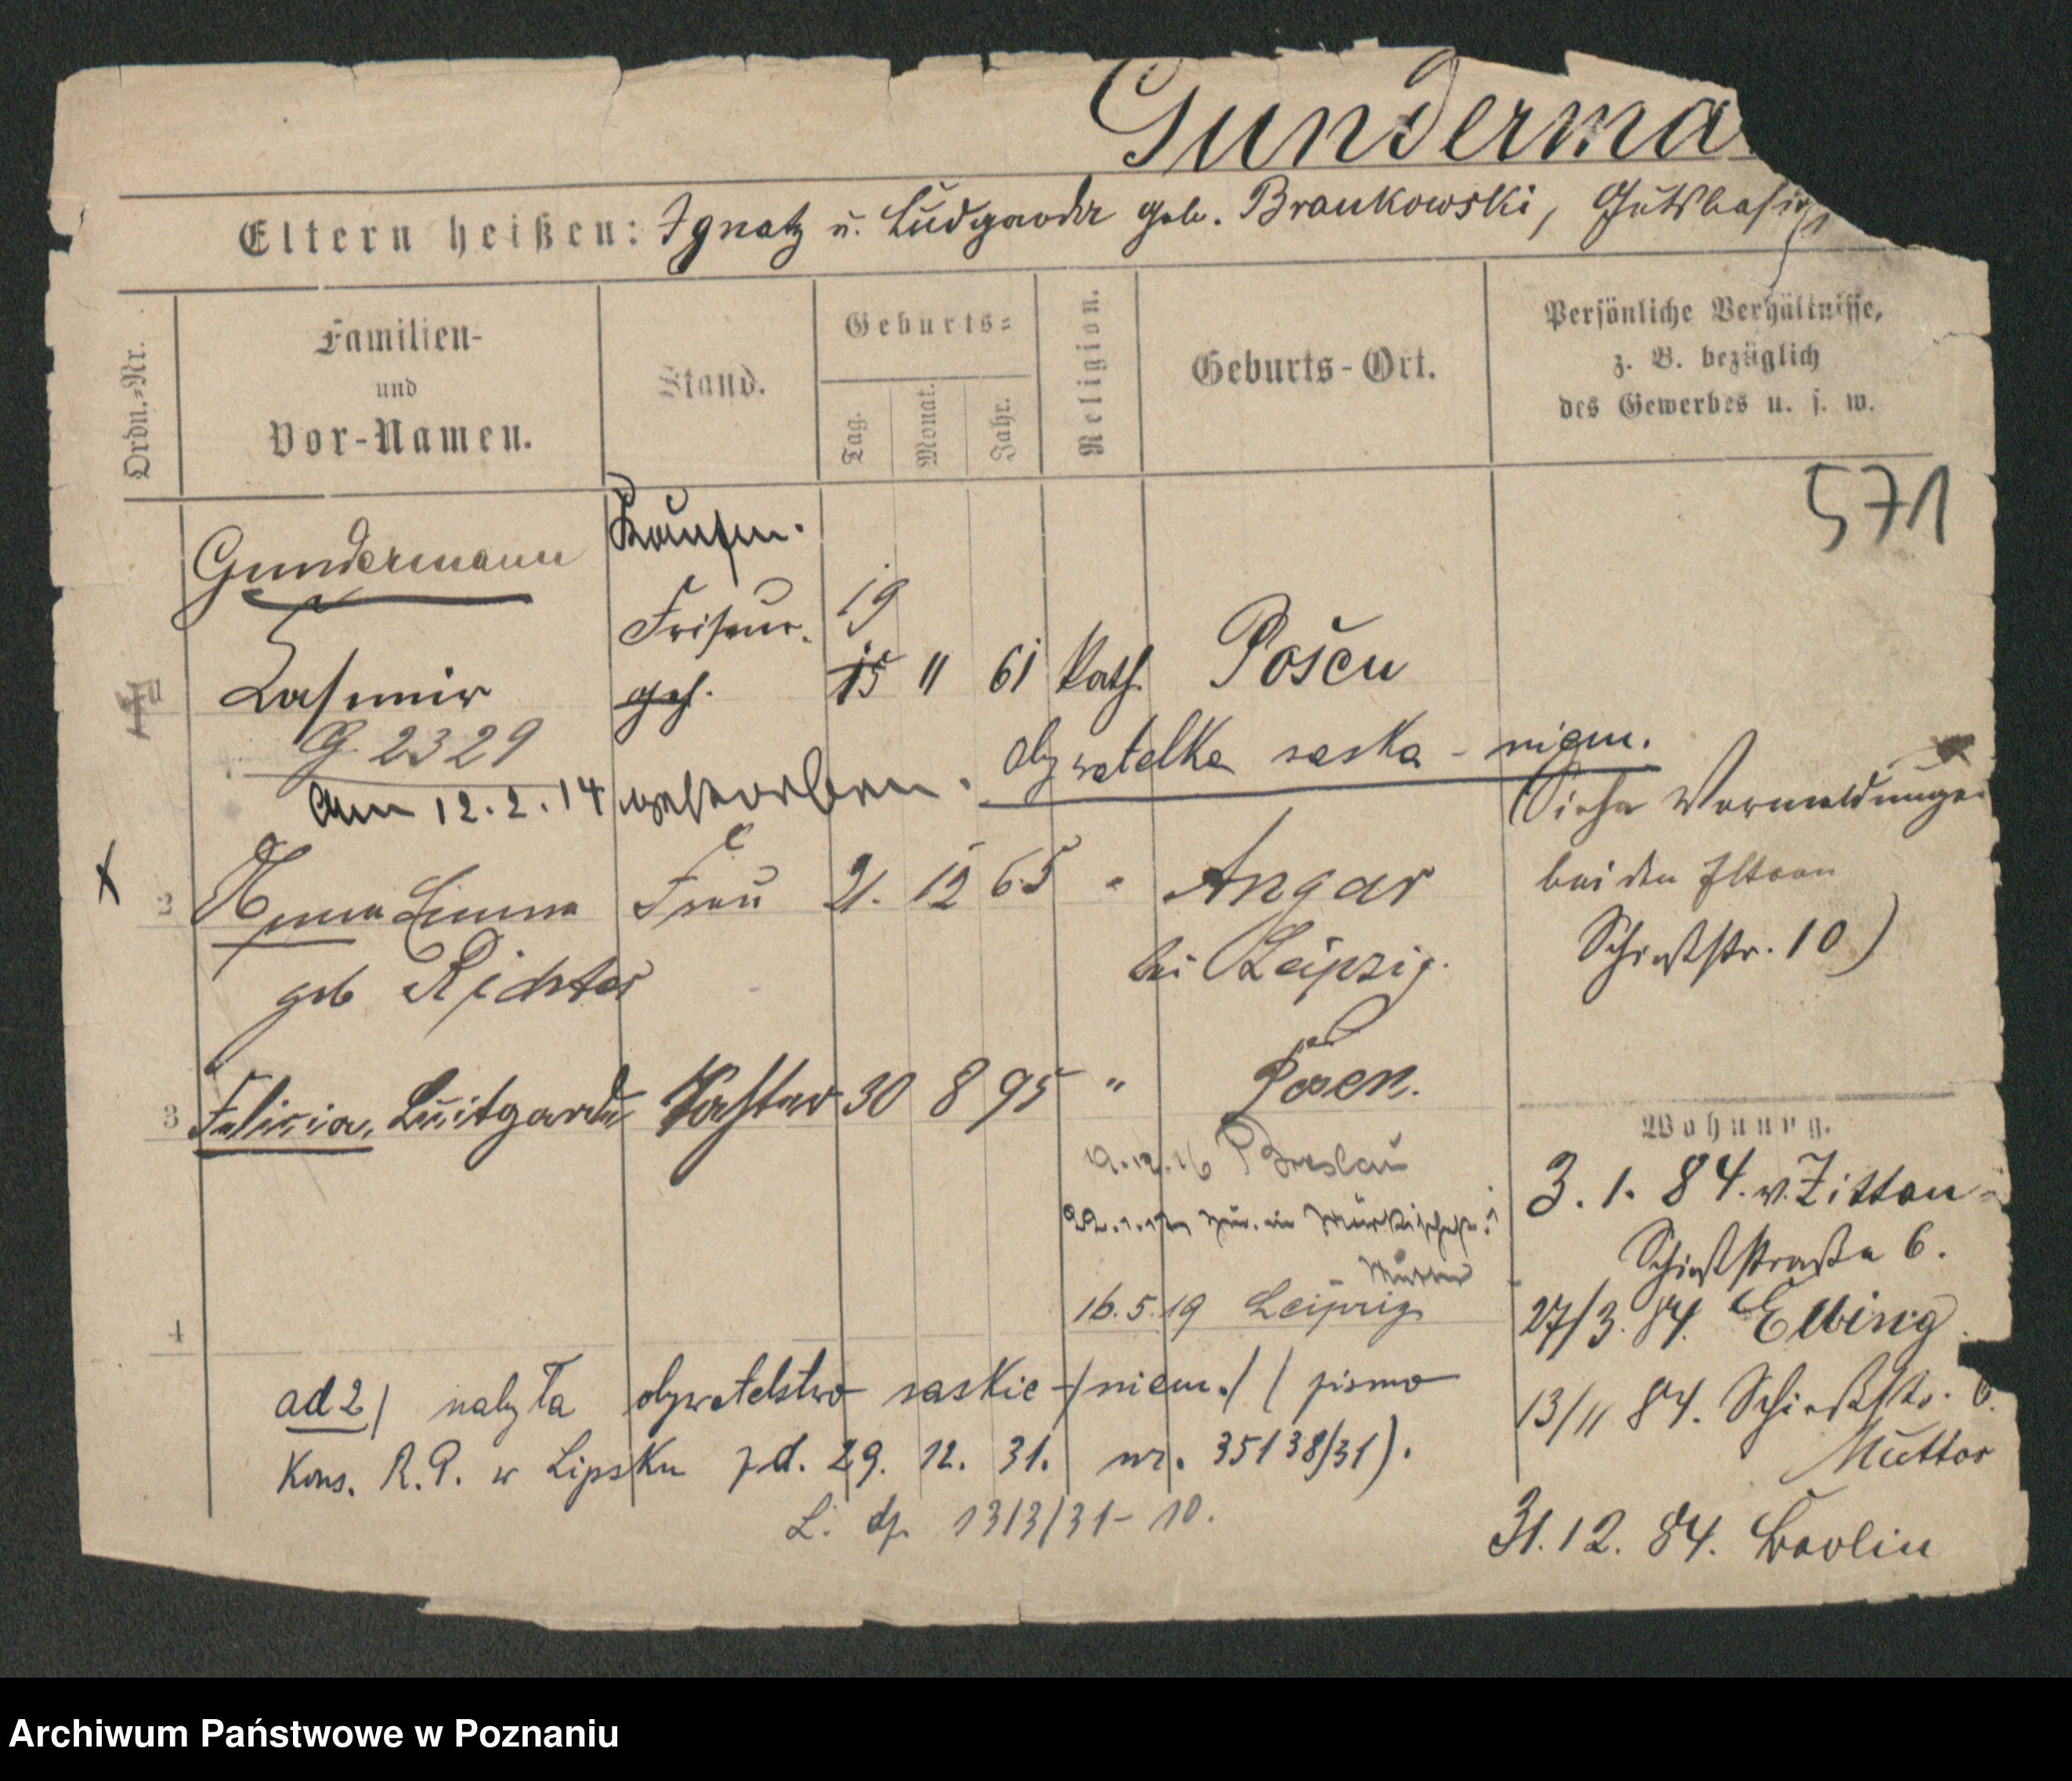 Gunderma
Eltern heißen: Ignatz u. Ludgarda geb. Brankowski, Gutsbesitz
Ordn.-Nr.
Familien-
und
Vor-Namen.
Stand.
Geburts-
Tag.
Monat.
Jahr.
Religion.
Geburts-Ort.
Persönliche Verhältnisse,
z. B. bezüglich
des Gewerbes u. s. w.
571
Gundermann
Kaufm.
Friseur.
geh.
Casimir
19
15 " 61 kath. Posen
G. 2329
am 12.2.14 gestorben.
obywatelka saska - niem.
(Siehe Vormeldungen
bei den Eltern
Schießstr. 10)
2 Anna Emma Frau 21. 12 65 " Angar
geb Richter
bei Leipzig.
3 Felicia, Luitgarde Tochter 30 8 95 " Posen.
19.12.16 Breslau
22.1.17 zur. in Märkischestr.
Mutter
16.5.19 Leipzig
4
Wohnung.
3. 1. 84. v. Zittau
Schießstraße 6.
27/3. 84. Elbing
13/11 84. Schießstr. 6.
Mutter
31.12. 84. Berlin
ad 2) nabyła obywatelstwo saskie /niem./ (pismo
Kons. R.P. w Lipsku z d. 29. 12. 31. nr. 35138/31).
L. dz. 1313/31 - 10.
Archiwum Państwowe w Poznaniu